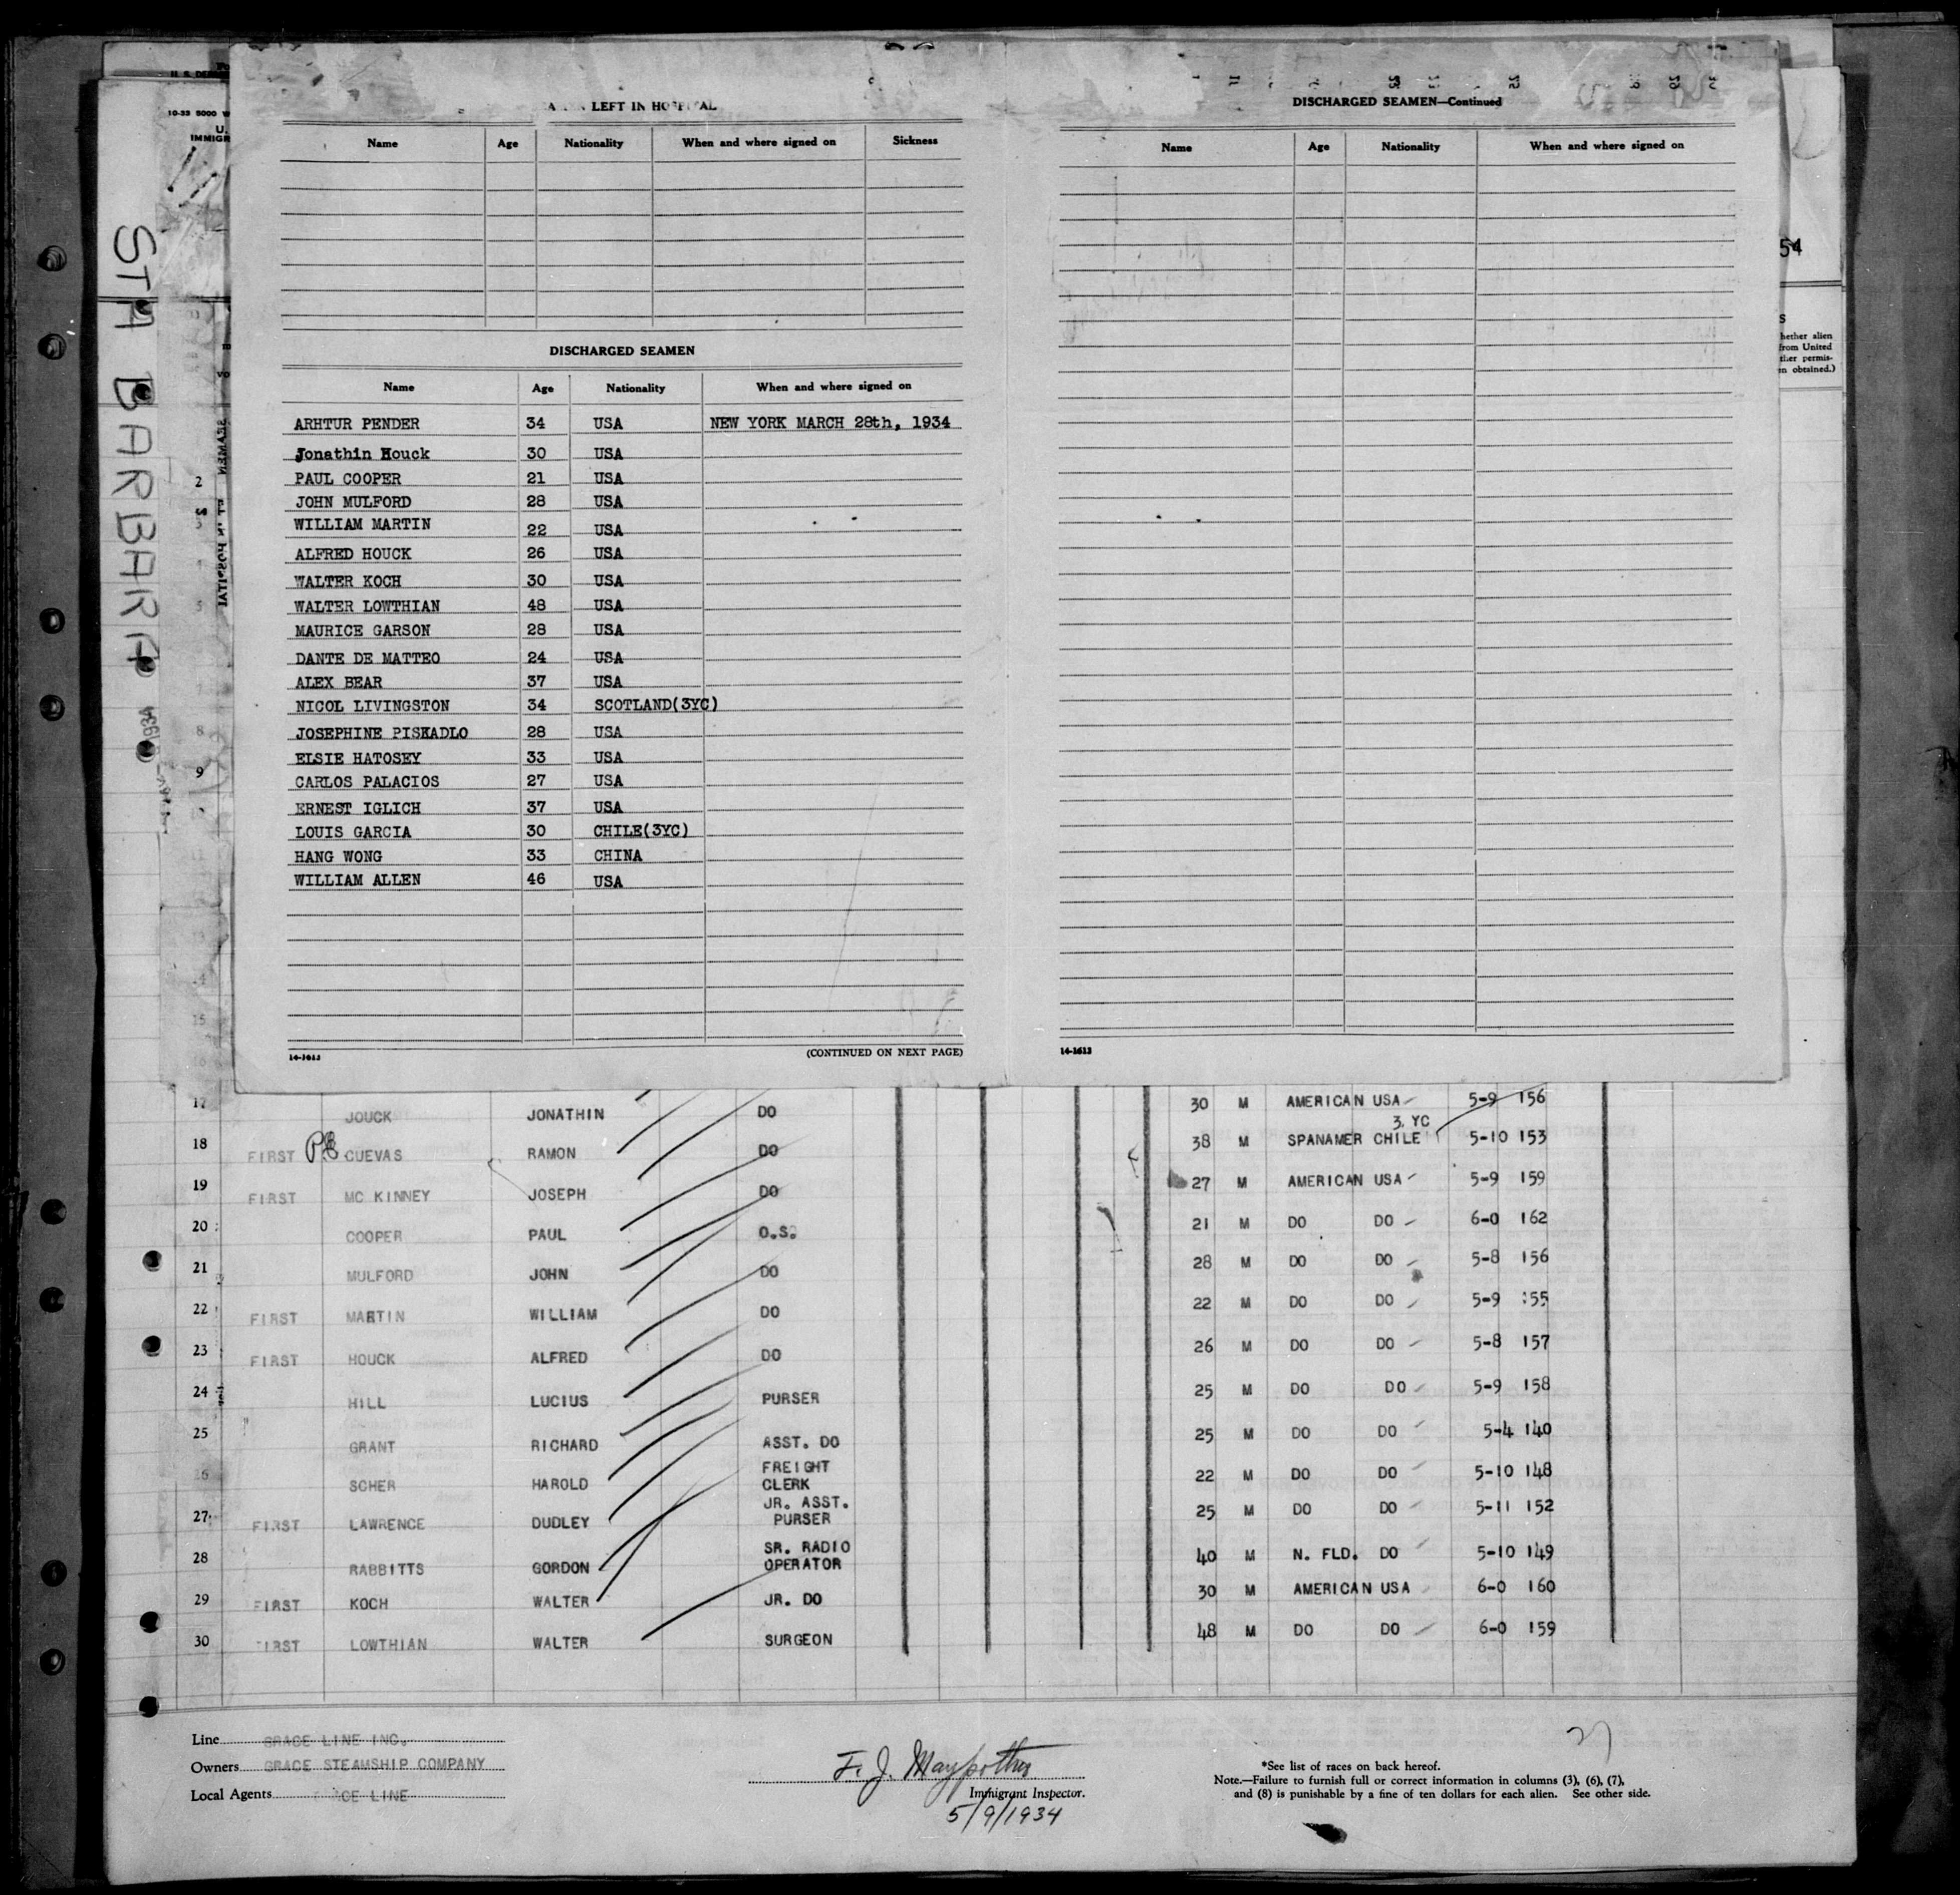 STA BARBARA
U. S. DE
10-33 5000
U.
IMMIGR
LEFT IN HOSPITAL
Name Age Nationality When and where signed on Sickness
DISCHARGED SEAMEN
Name Age Nationality When and where signed on
ARHTUR PENDER 34 USA NEW YORK MARCH 28th, 1934
Jonathin Houck 30 USA
PAUL COOPER 21 USA
JOHN MULFORD 28 USA
WILLIAM MARTIN 22 USA
ALFRED HOUCK 26 USA
WALTER KOCH 30 USA
WALTER LOWTHIAN 48 USA
MAURICE GARSON 28 USA
DANTE DE MATTEO 24 USA
ALEX BEAR 37 USA
NICOL LIVINGSTON 34 SCOTLAND(3YC)
JOSEPHINE PISKADLO 28 USA
ELSIE HATOSEY 33 USA
CARLOS PALACIOS 27 USA
ERNEST IGLICH 37 USA
LOUIS GARCIA 30 CHILE(3YC)
HANG WONG 33 CHINA
WILLIAM ALLEN 46 USA
14-1613 (CONTINUED ON NEXT PAGE)
DISCHARGED SEAMEN—Continued
Name Age Nationality When and where signed on
14-1613
54
hether alien
from United
ther permis-
en obtained.)
17 JOUCK JONATHIN DO 30 M AMERICAN USA 5-9 156
18 FIRST CUEVAS RAMON DO 38 M SPANAMER CHILE 3. YC 5-10 153
19 FIRST MC KINNEY JOSEPH DO 27 M AMERICAN USA 5-9 159
20 COOPER PAUL O.S. 21 M DO DO 6-0 162
21 MULFORD JOHN DO 28 M DO DO 5-8 156
22 FIRST MARTIN WILLIAM DO 22 M DO DO 5-9 155
23 FIRST HOUCK ALFRED DO 26 M DO DO 5-8 157
24 HILL LUCIUS PURSER 25 M DO DO 5-9 158
25 GRANT RICHARD ASST. DO 25 M DO DO 5-4 140
26 SCHER HAROLD FREIGHT CLERK 22 M DO DO 5-10 148
27 FIRST LAWRENCE DUDLEY JR. ASST. PURSER 25 M DO DO 5-11 152
28 RABBITTS GORDON SR. RADIO OPERATOR 40 M N. FLD. DO 5-10 149
29 FIRST KOCH WALTER JR. DO 30 M AMERICAN USA 6-0 160
30 FIRST LOWTHIAN WALTER SURGEON 48 M DO DO 6-0 159
Line GRACE LINE INC.
Owners GRACE STEAMSHIP COMPANY
Local Agents GRACE LINE
F. J.
Immigrant Inspector.
5/9/1934
*See list of races on back hereof.
Note.—Failure to furnish full or correct information in columns (3), (6), (7),
and (8) is punishable by a fine of ten dollars for each alien. See other side.